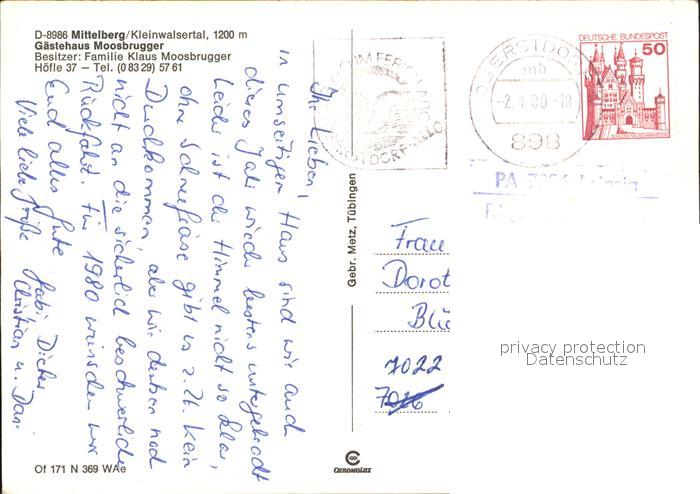 D-8986 Mittelberg/Kleinwalsertal, 1200 m
Gästehaus Moosbrugger
Besitzer: Familie Klaus Moosbrugger
Höfle 37 – Tel. (0 83 29) 57 61
Ihr Lieben,
in umseitigem Haus sind wir auch
dieses Jahr wieder bestens untergebracht
Leider ist der Himmel nicht so klar,
ohne Schneefräse gibt es z. Zt. kein
Durchkommen, aber wir denken noch
nicht an die sicherlich beschwerliche
Rückfahrt. Für 1980 wünschen wir
Euch alles Gute
Viele liebe Grüße Gabi Dieter
Christian u. Dan.
Of 171 N 369 WAe
Gebr. Metz, Tübingen
CHROMOLUX
OBERSTDORF
mb
-2.1.80-18
898
DEUTSCHE BUNDESPOST
50
PA 7026
Frau
Dorot
Blü
7022
7026
privacy protection
Datenschutz